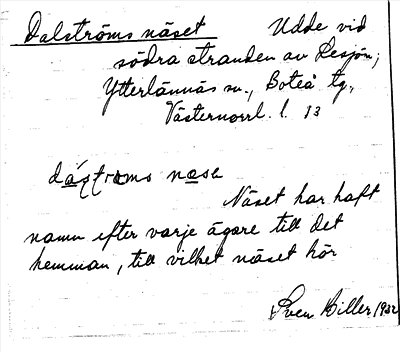 Dalströms näset Udde vid
södra stranden av Lesjön;
Ytterlännäs sn., Boteå tg,
Västernorrl. l. 13
dáʂtroms nose
Näset har haft
namn efter varje ägare till det
hemman, till vilket näset hör
Sven Biller, 1932